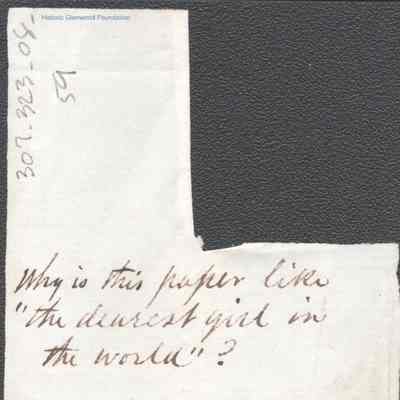 Historic Glenwood Foundation
307-323-08-
59
Why is this paper like
"the dearest girl in
the world"?